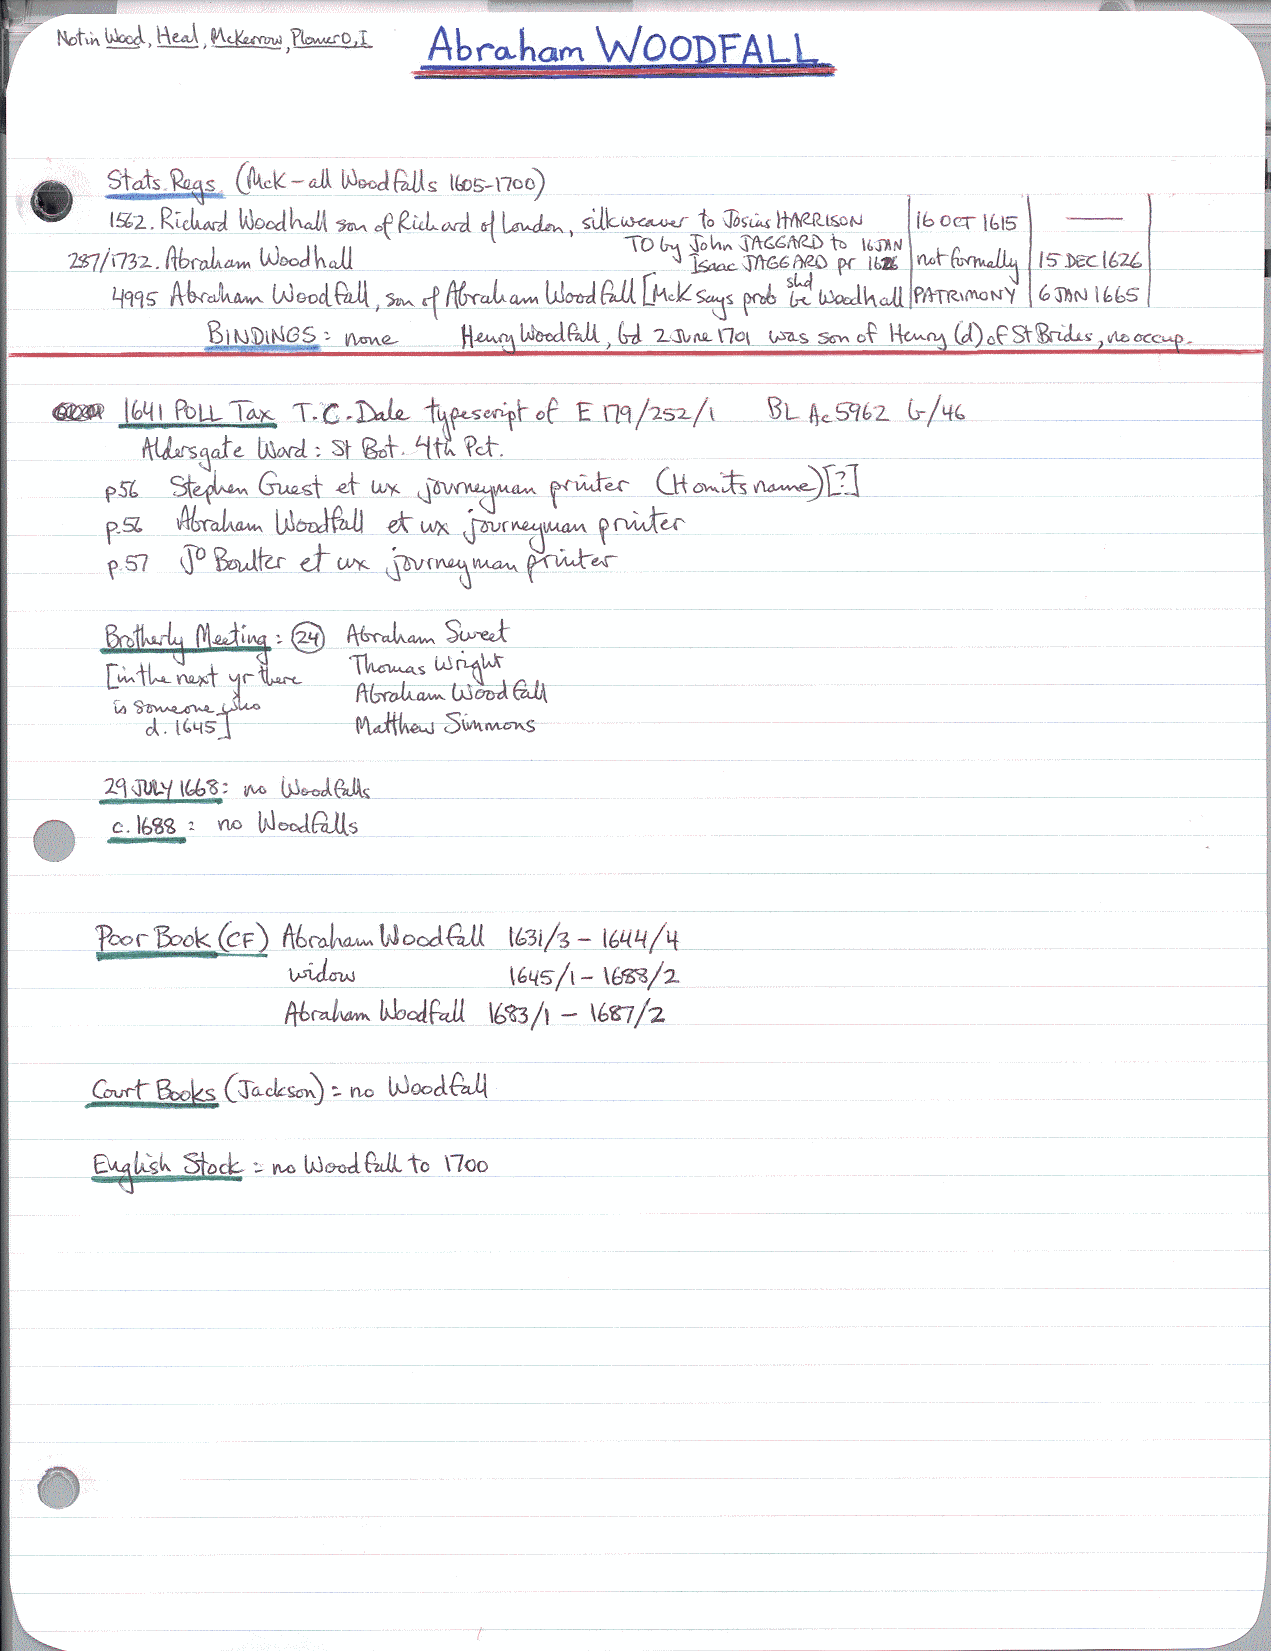 Not in Wood, Heal, McKerrow, Plomer O, I
Abraham WOODFALL
Stats. Regs. (McK-all Woodfalls 1605-1700)
1562. Richard Woodhall son of Richard of London, silkweaver to Josias HARRISON | 16 OCT 1615 | —
TO by John JAGGARD to 16 JAN
287/1732. Abraham Woodhall Isaac JAGGARD pr 1626 | not formally | 15 DEC 1626
4995 Abraham Woodfall, son of Abraham Woodfall [McK says prob shd be Woodhall | PATRIMONY | 6 JAN 1665
BINDINGS: none Henry Woodfall, bd 2 June 1701 was son of Henry (d) of St Brides, no occup.
1641 POLL TAX T.C. Dale typescript of E 179/252/1 BL Ac 5962 b/46
Aldersgate Ward: St Bot. 4th Pct.
p56 Stephen Guest et ux journeyman printer (H omits name) [?]
p.56 Abraham Woodfall et ux journeyman printer
p.57 Jo Boulter et ux journeyman printer
Brotherly Meeting: 24 Abraham Sweet
Thomas Wright
[in the next yr there Abraham Woodfall
is someone who
d. 1645] Matthew Simmons
29 JULY 1668: no Woodfalls
c. 1688: no Woodfalls
Poor Book (CF) Abraham Woodfall 1631/3 - 1644/4
widow 1645/1 - 1688/2
Abraham Woodfall 1683/1 - 1687/2
Court Books (Jackson) = no Woodfall
English Stock = no Woodfall to 1700